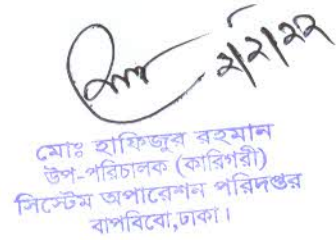 ২/২/২২
মোঃ হাফিজুর রহমান
উপ-পরিচালক (কারিগরী)
সিস্টেম অপারেশন পরিদপ্তর
বাপবিবো,ঢাকা।